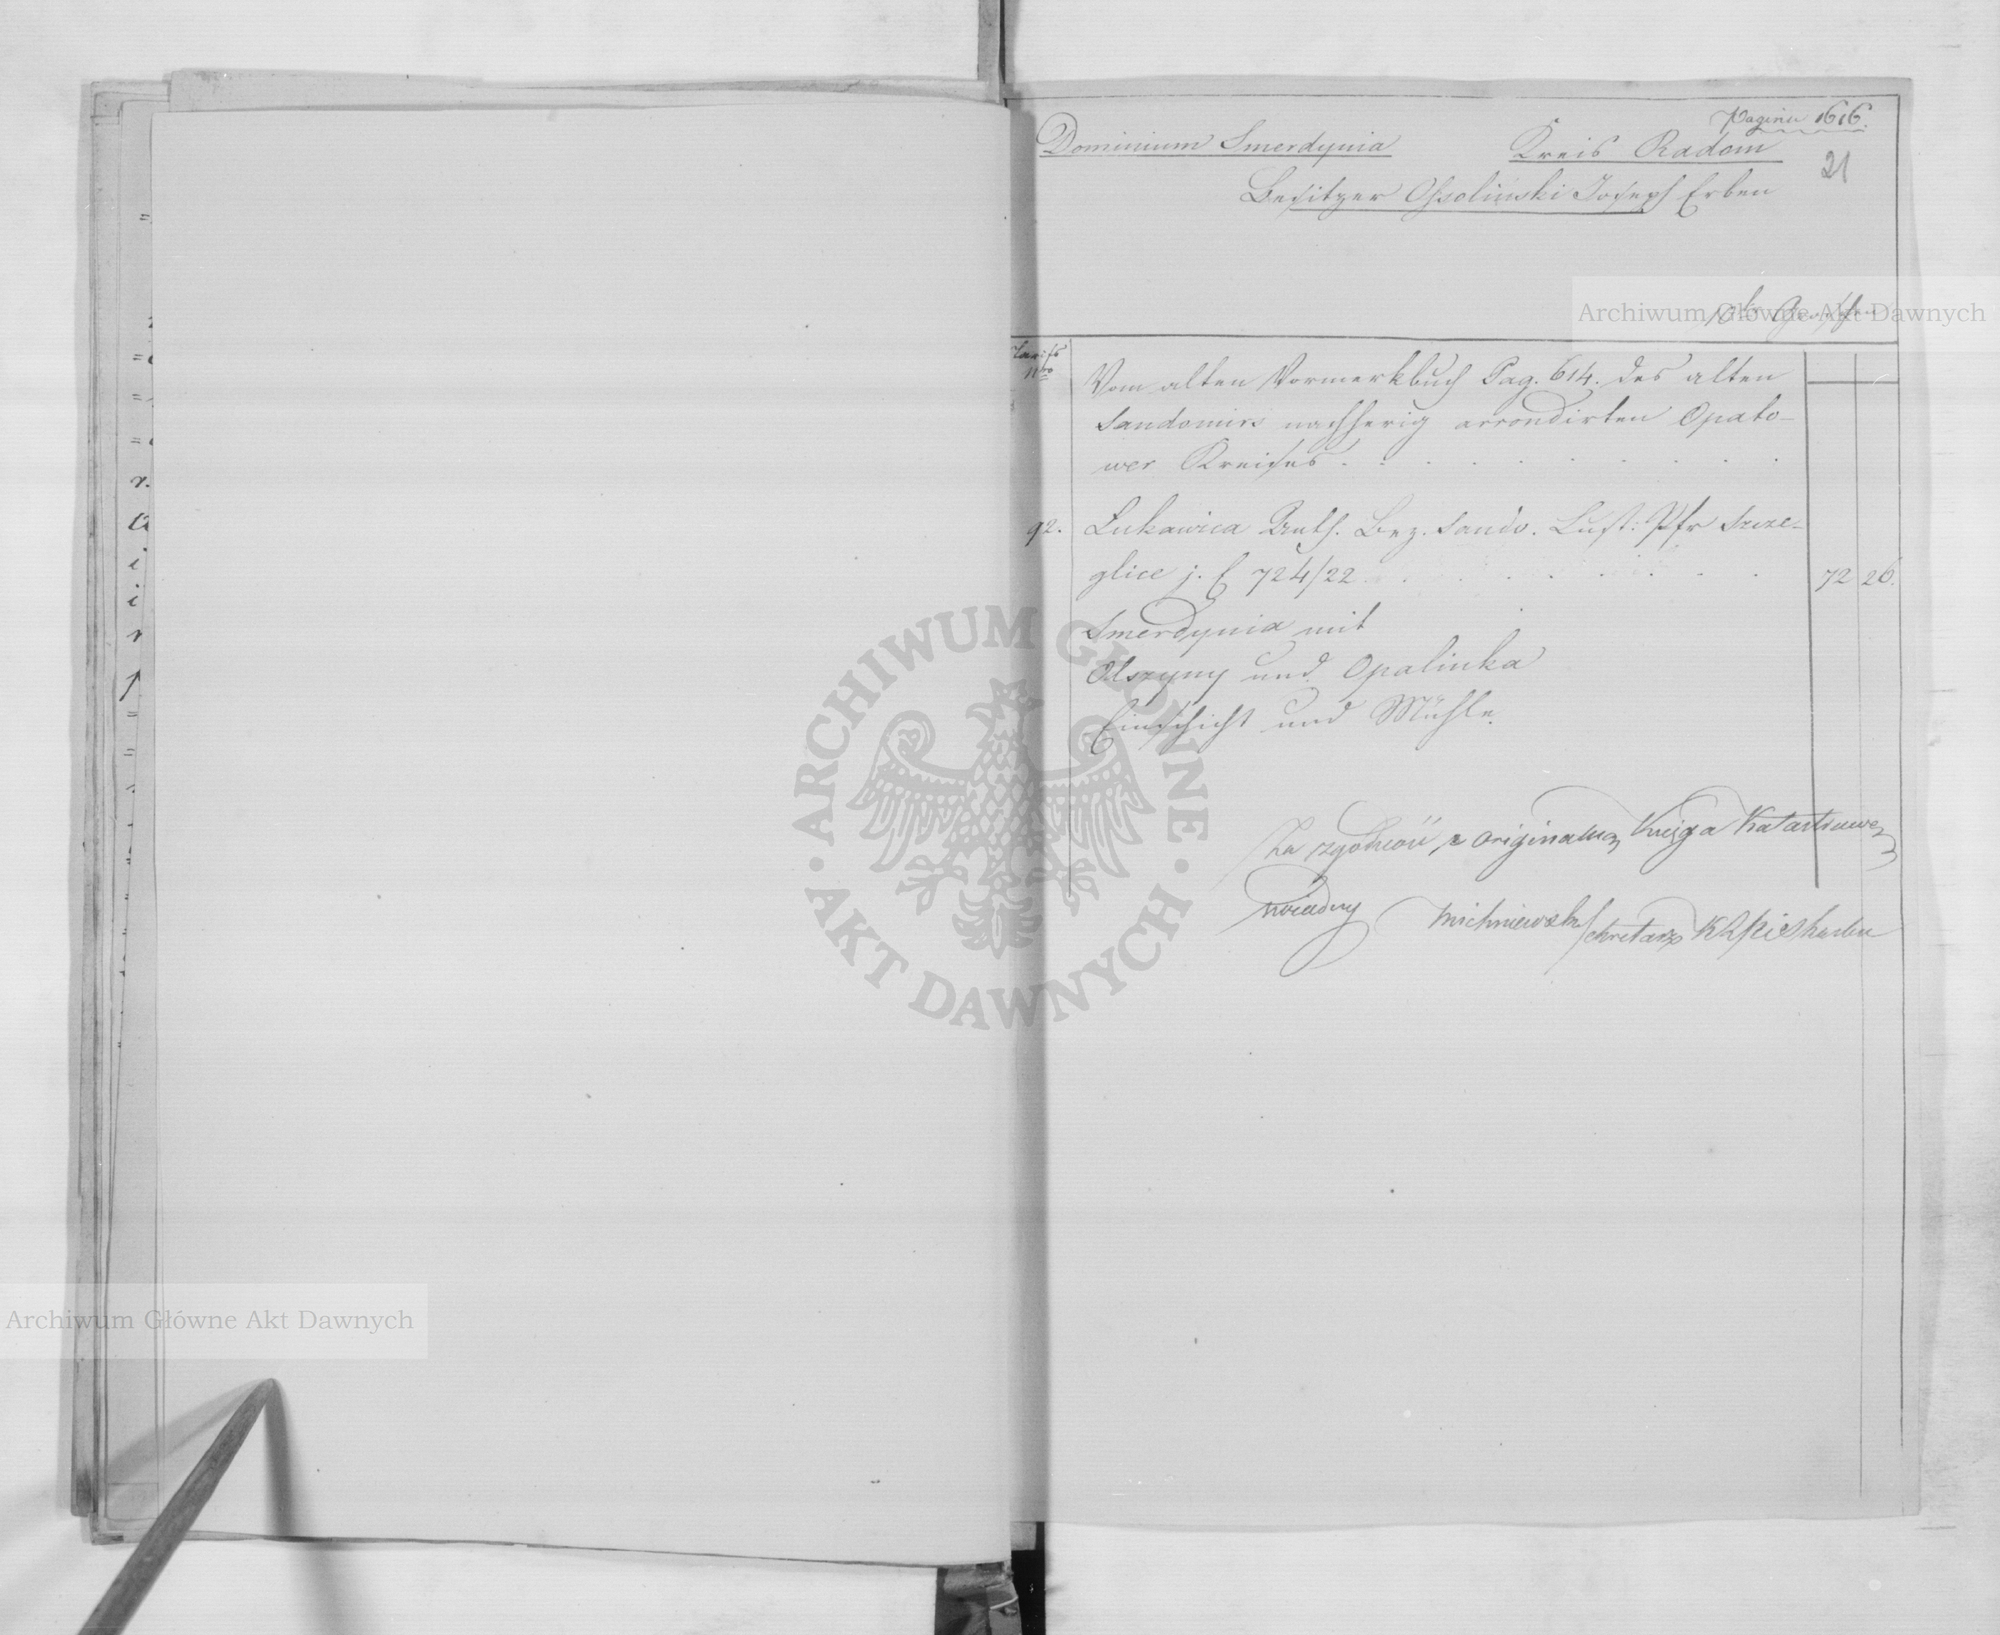 Pagina 1616.
21
Dominium Smerdynia Kreis Radom
Besitzer Ossoliński Joseph Erben
Archiwum Główne Akt Dawnych
Tariffs
Nro
Vom alten Vormerkbuch Pag. 614. des alten
Sandomirs nachherig arrondirten Opato-
wer Kreises
92. Lukawica Anth. Bez. Sando. Lust: Pfr Szcze-
glice j. f 724/22 72 26.
Smerdynia mit
Olszyny und Opalinka
Einschicht und Mühle.
Za zgodność z originalną Księgą Katastrową
Michniewski Sekretarz
ARCHIWUM GŁÓWNE
AKT DAWNYCH
Archiwum Główne Akt Dawnych